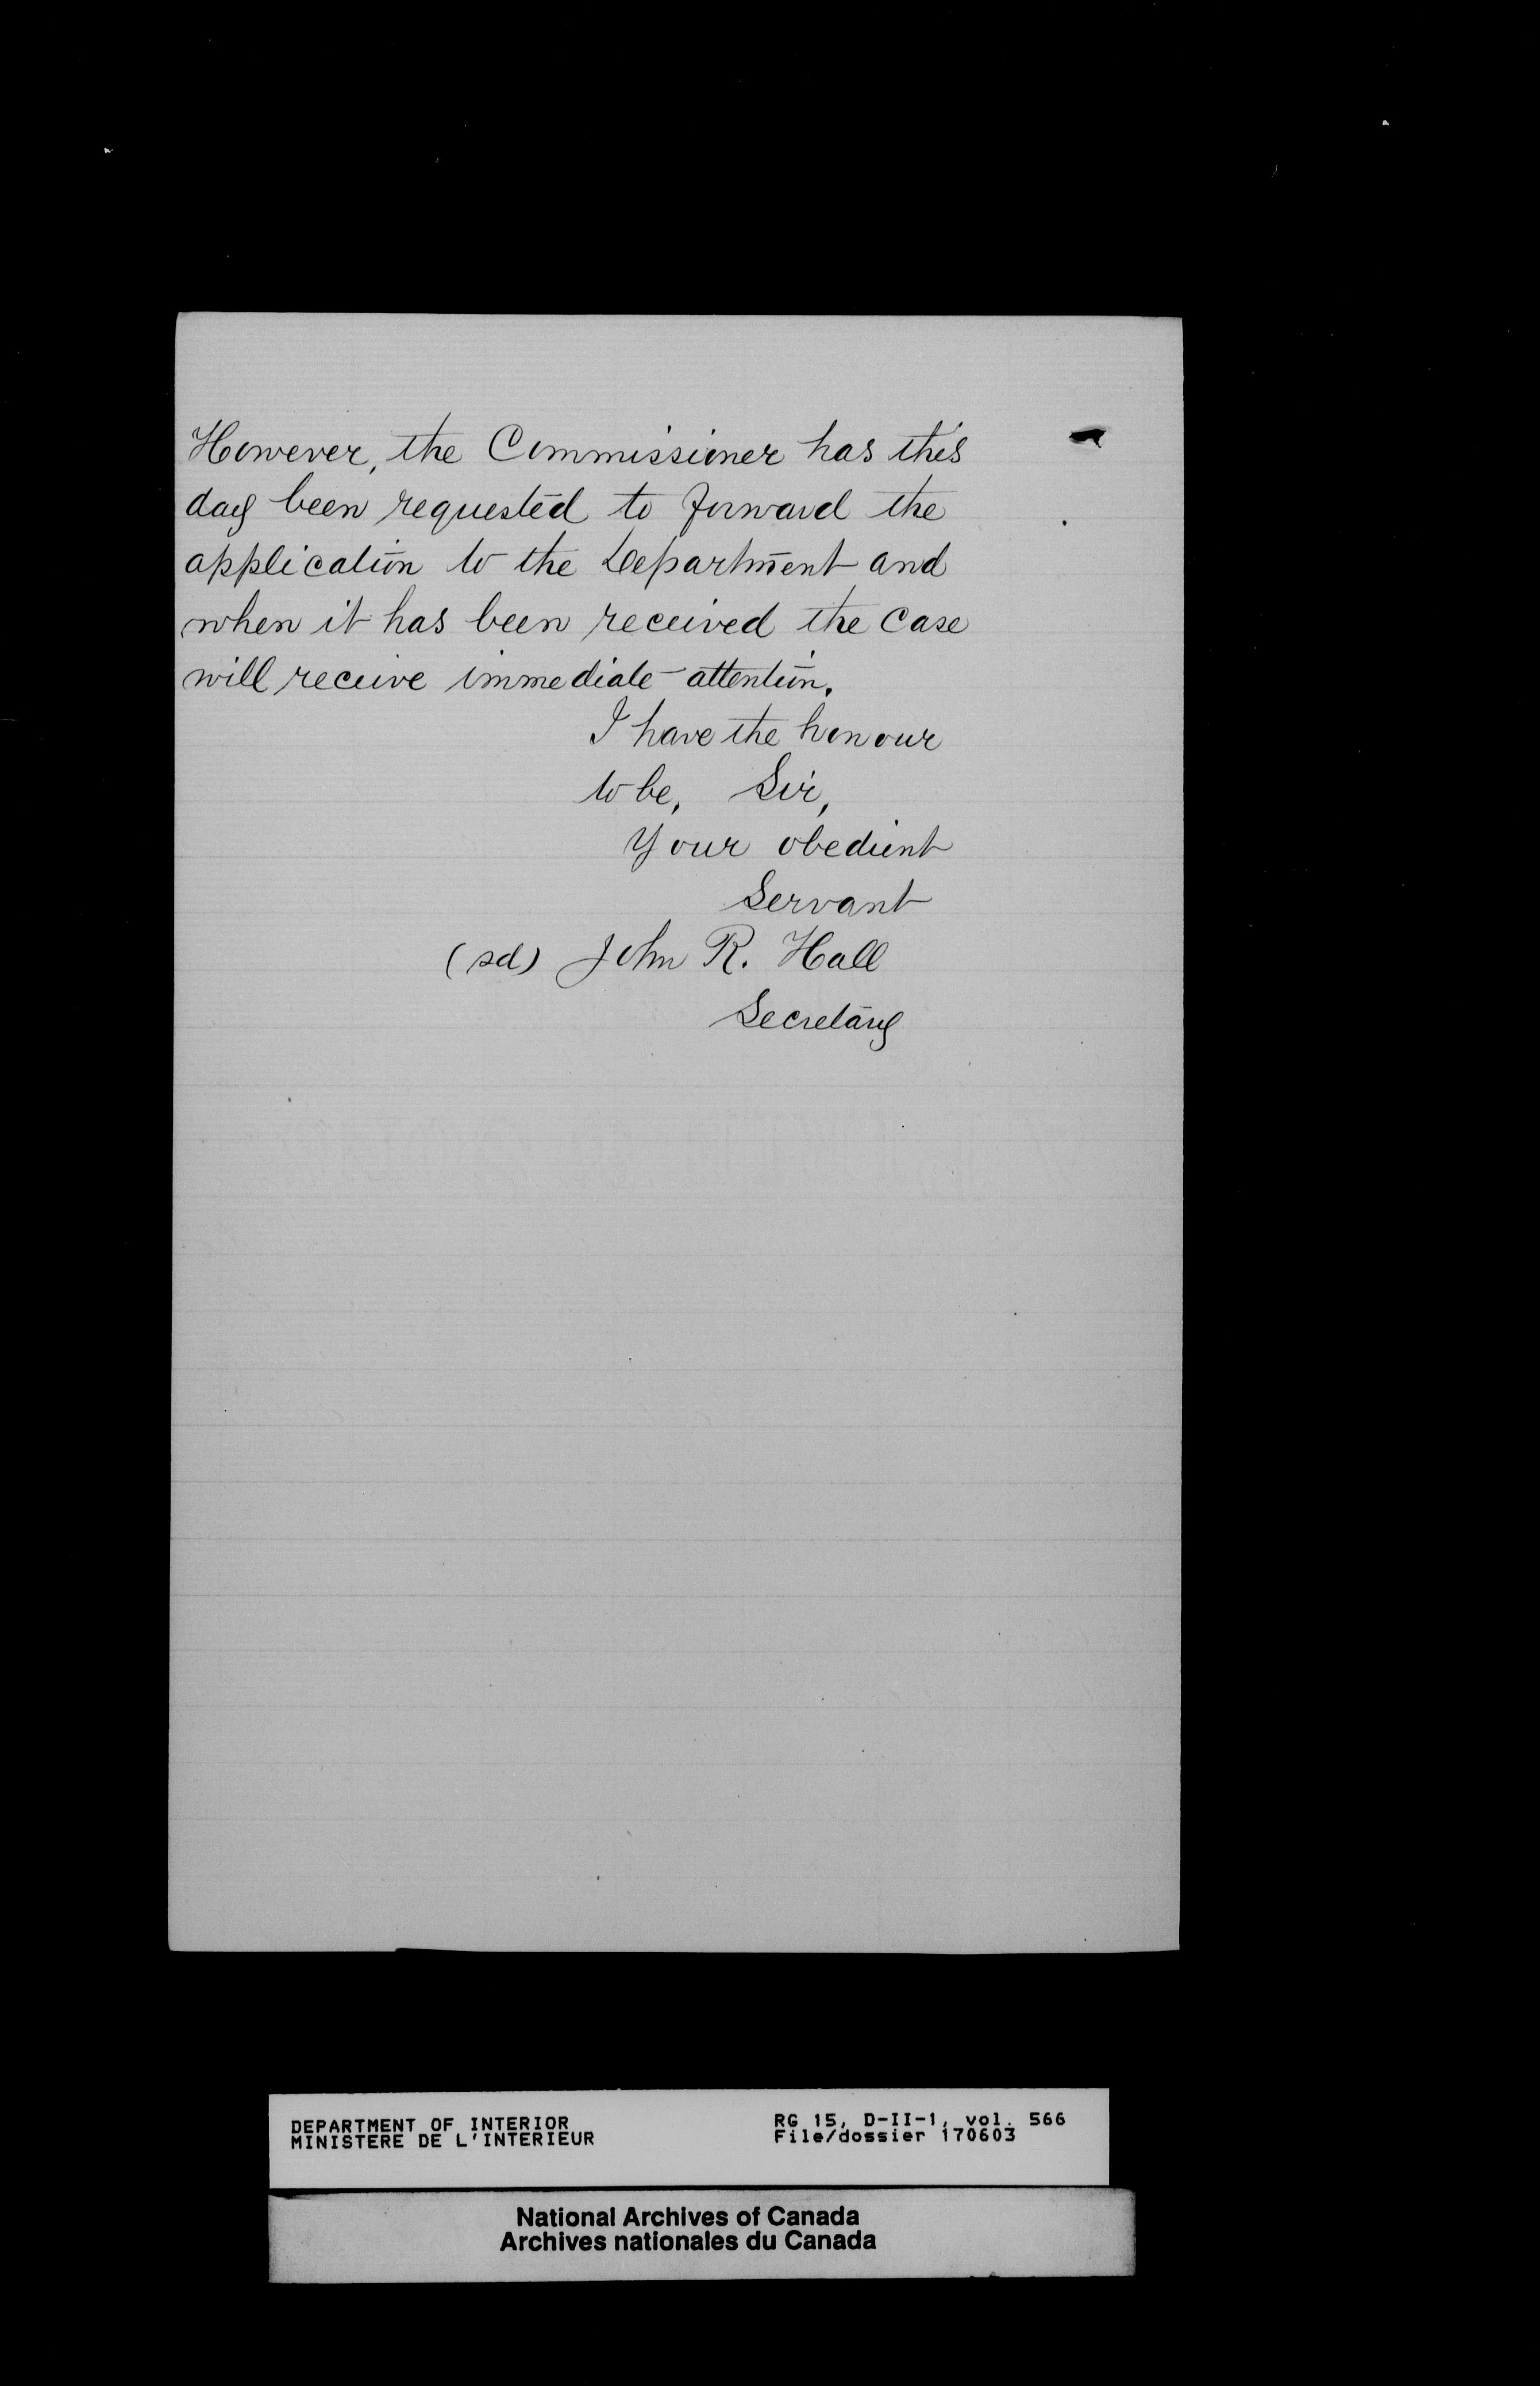 However, the Commissioner has this
day been requested to forward the
application to the Department and
when it has been received the case
will receive immediate attention.
I have the honour
to be, Sir,
Your obedient
Servant
(sd) John R. Hall
Secretary
DEPARTMENT OF INTERIOR
MINISTERE DE L'INTERIEUR
RG 15, D-II-1, vol. 566
File/dossier 170603
National Archives of Canada
Archives nationales du Canada